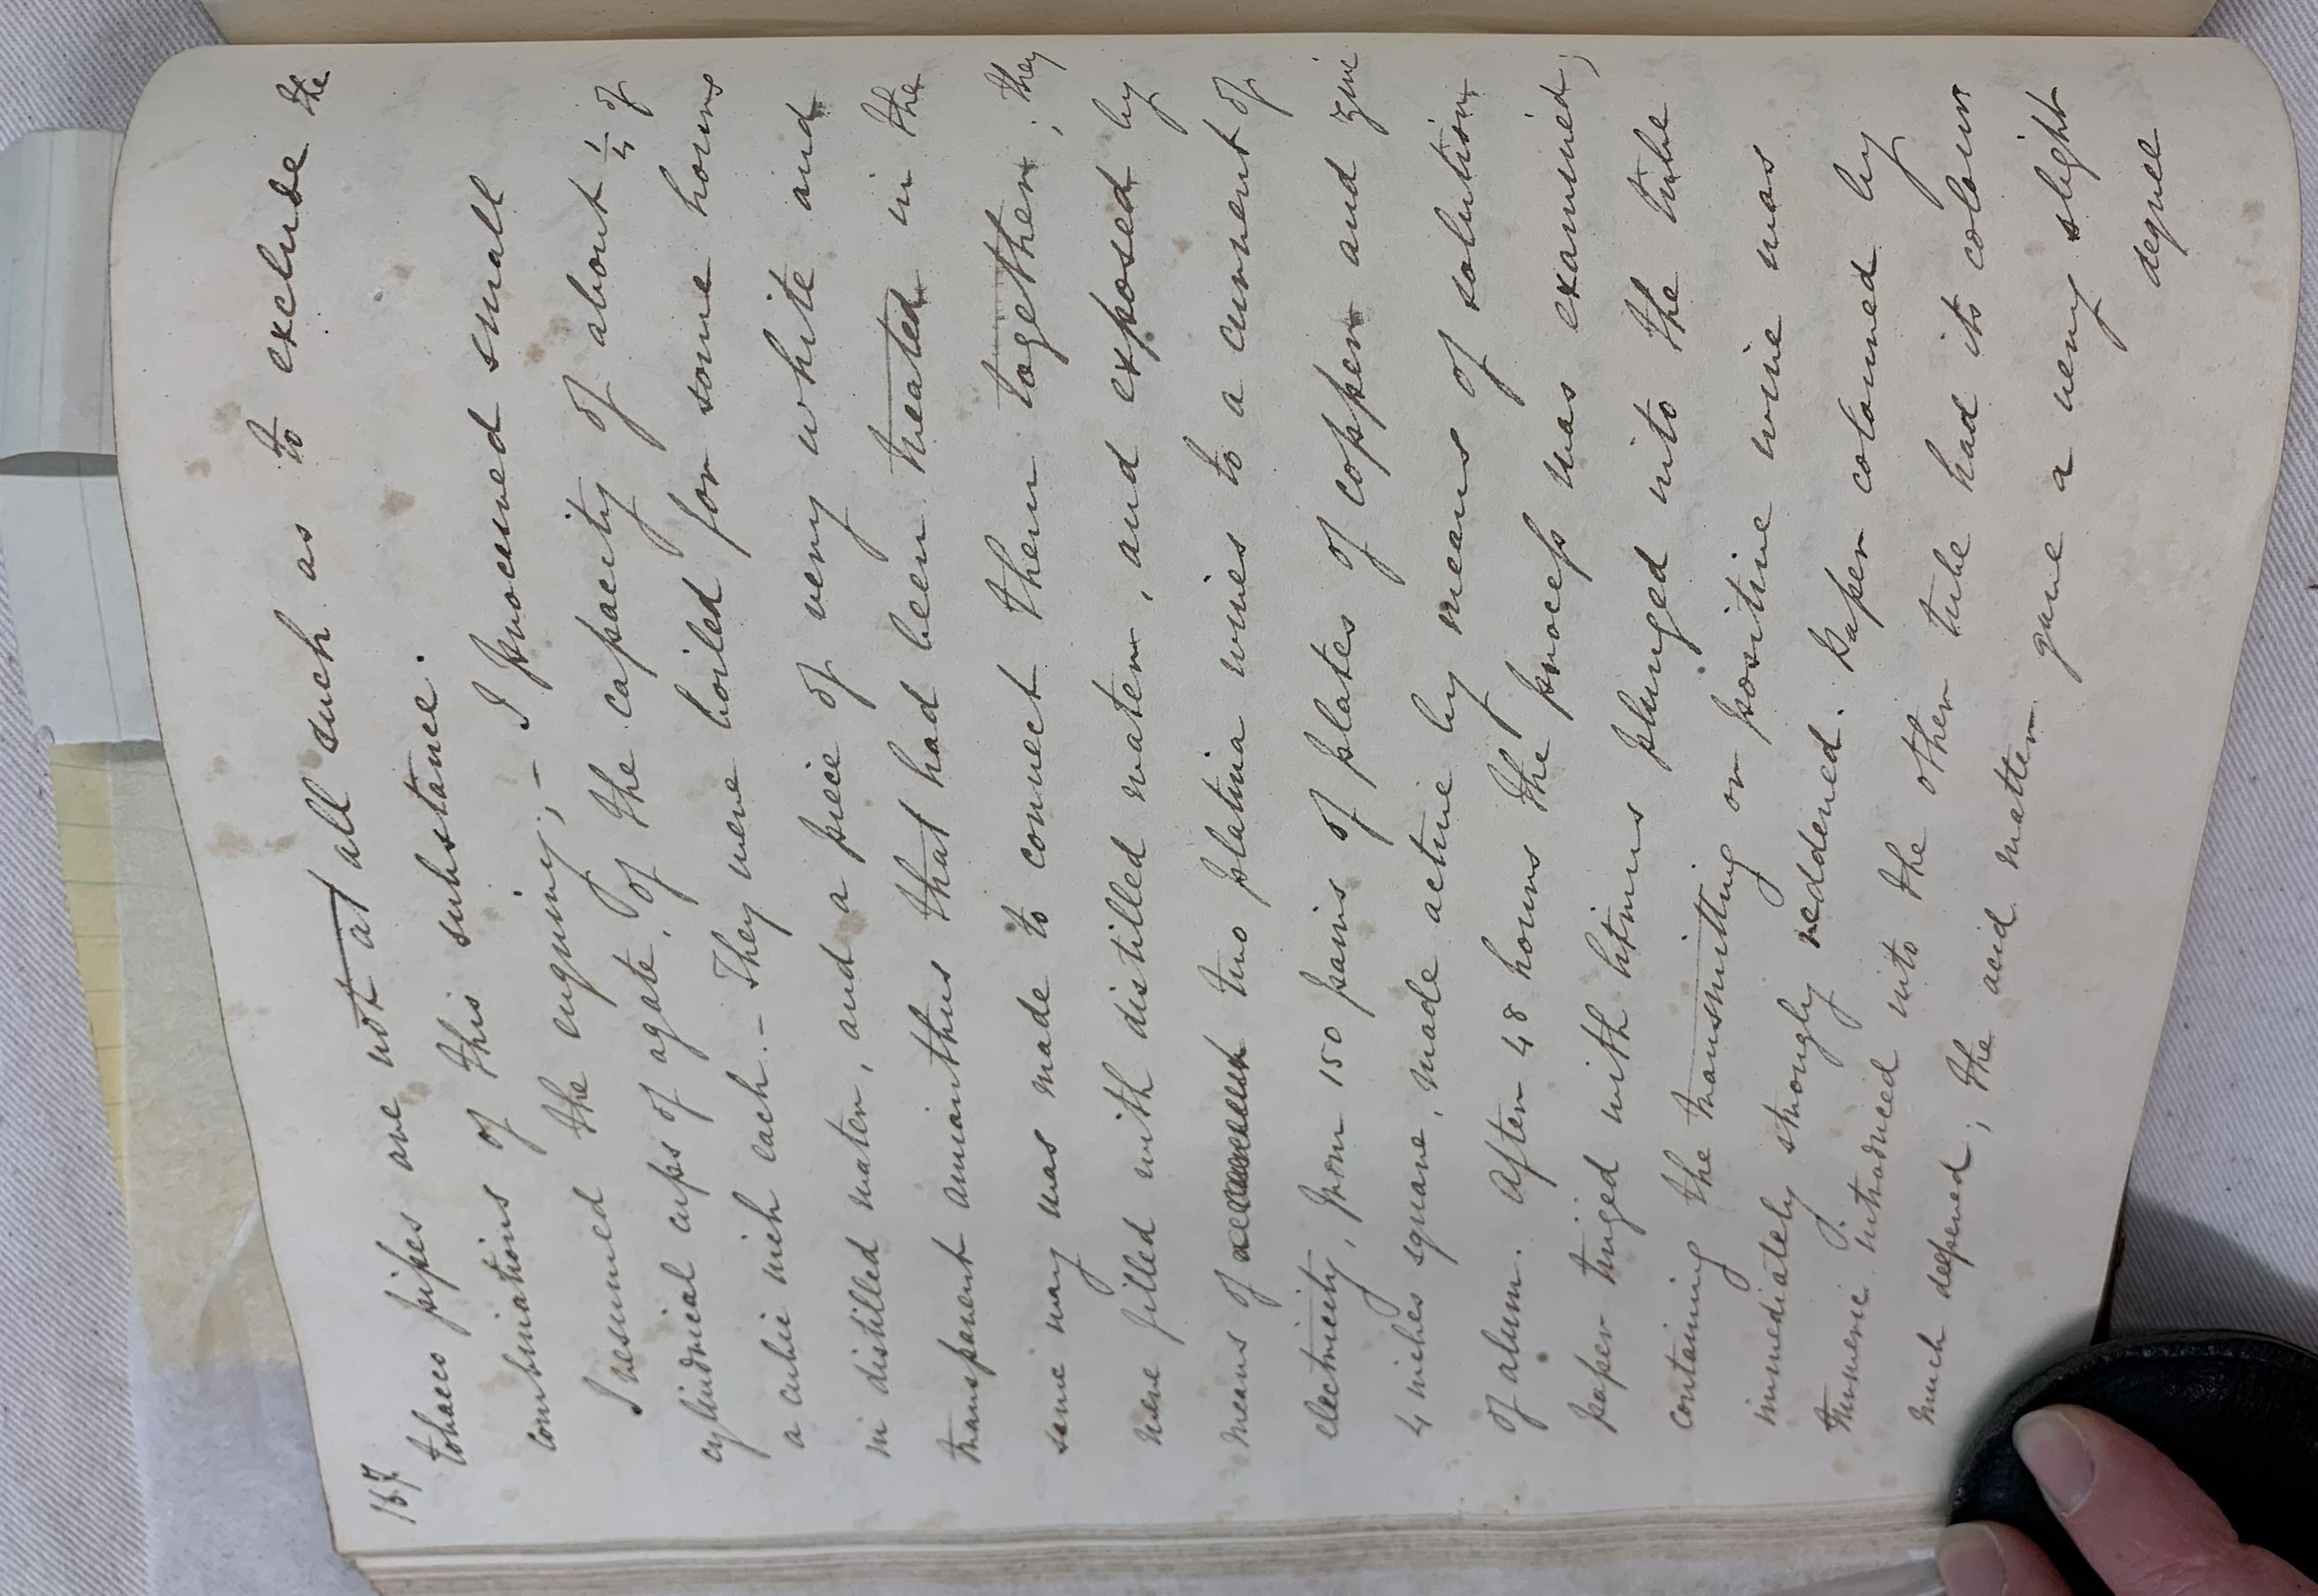 167
tobacco pipes are not at all such as to exclude the
combinations of this substance.
I resumed the enquiry; - I procured small
cylindrical cups of agate, of the capacity of about 1/4 of
a cubic inch each. - They were boiled for some hours
in distilled water, and a piece of very white and
transparent amianthus that had been treated in the
same way was made to connect them together; they
were filled with distilled water, and exposed by
means of two platina wires to a current of
electricity, from 150 pairs of plates of copper and zinc
4 inches square, made active by means of solution
of alum. After 48 hours the process was examined;
paper tinged with litmus plunged into the tube
containing the transmitting or positive wire was
immediately strongly reddened. Paper coloured by
turmeric introduced into the other tube had its colour
much deepened; the acid matter gave a very slight
degree